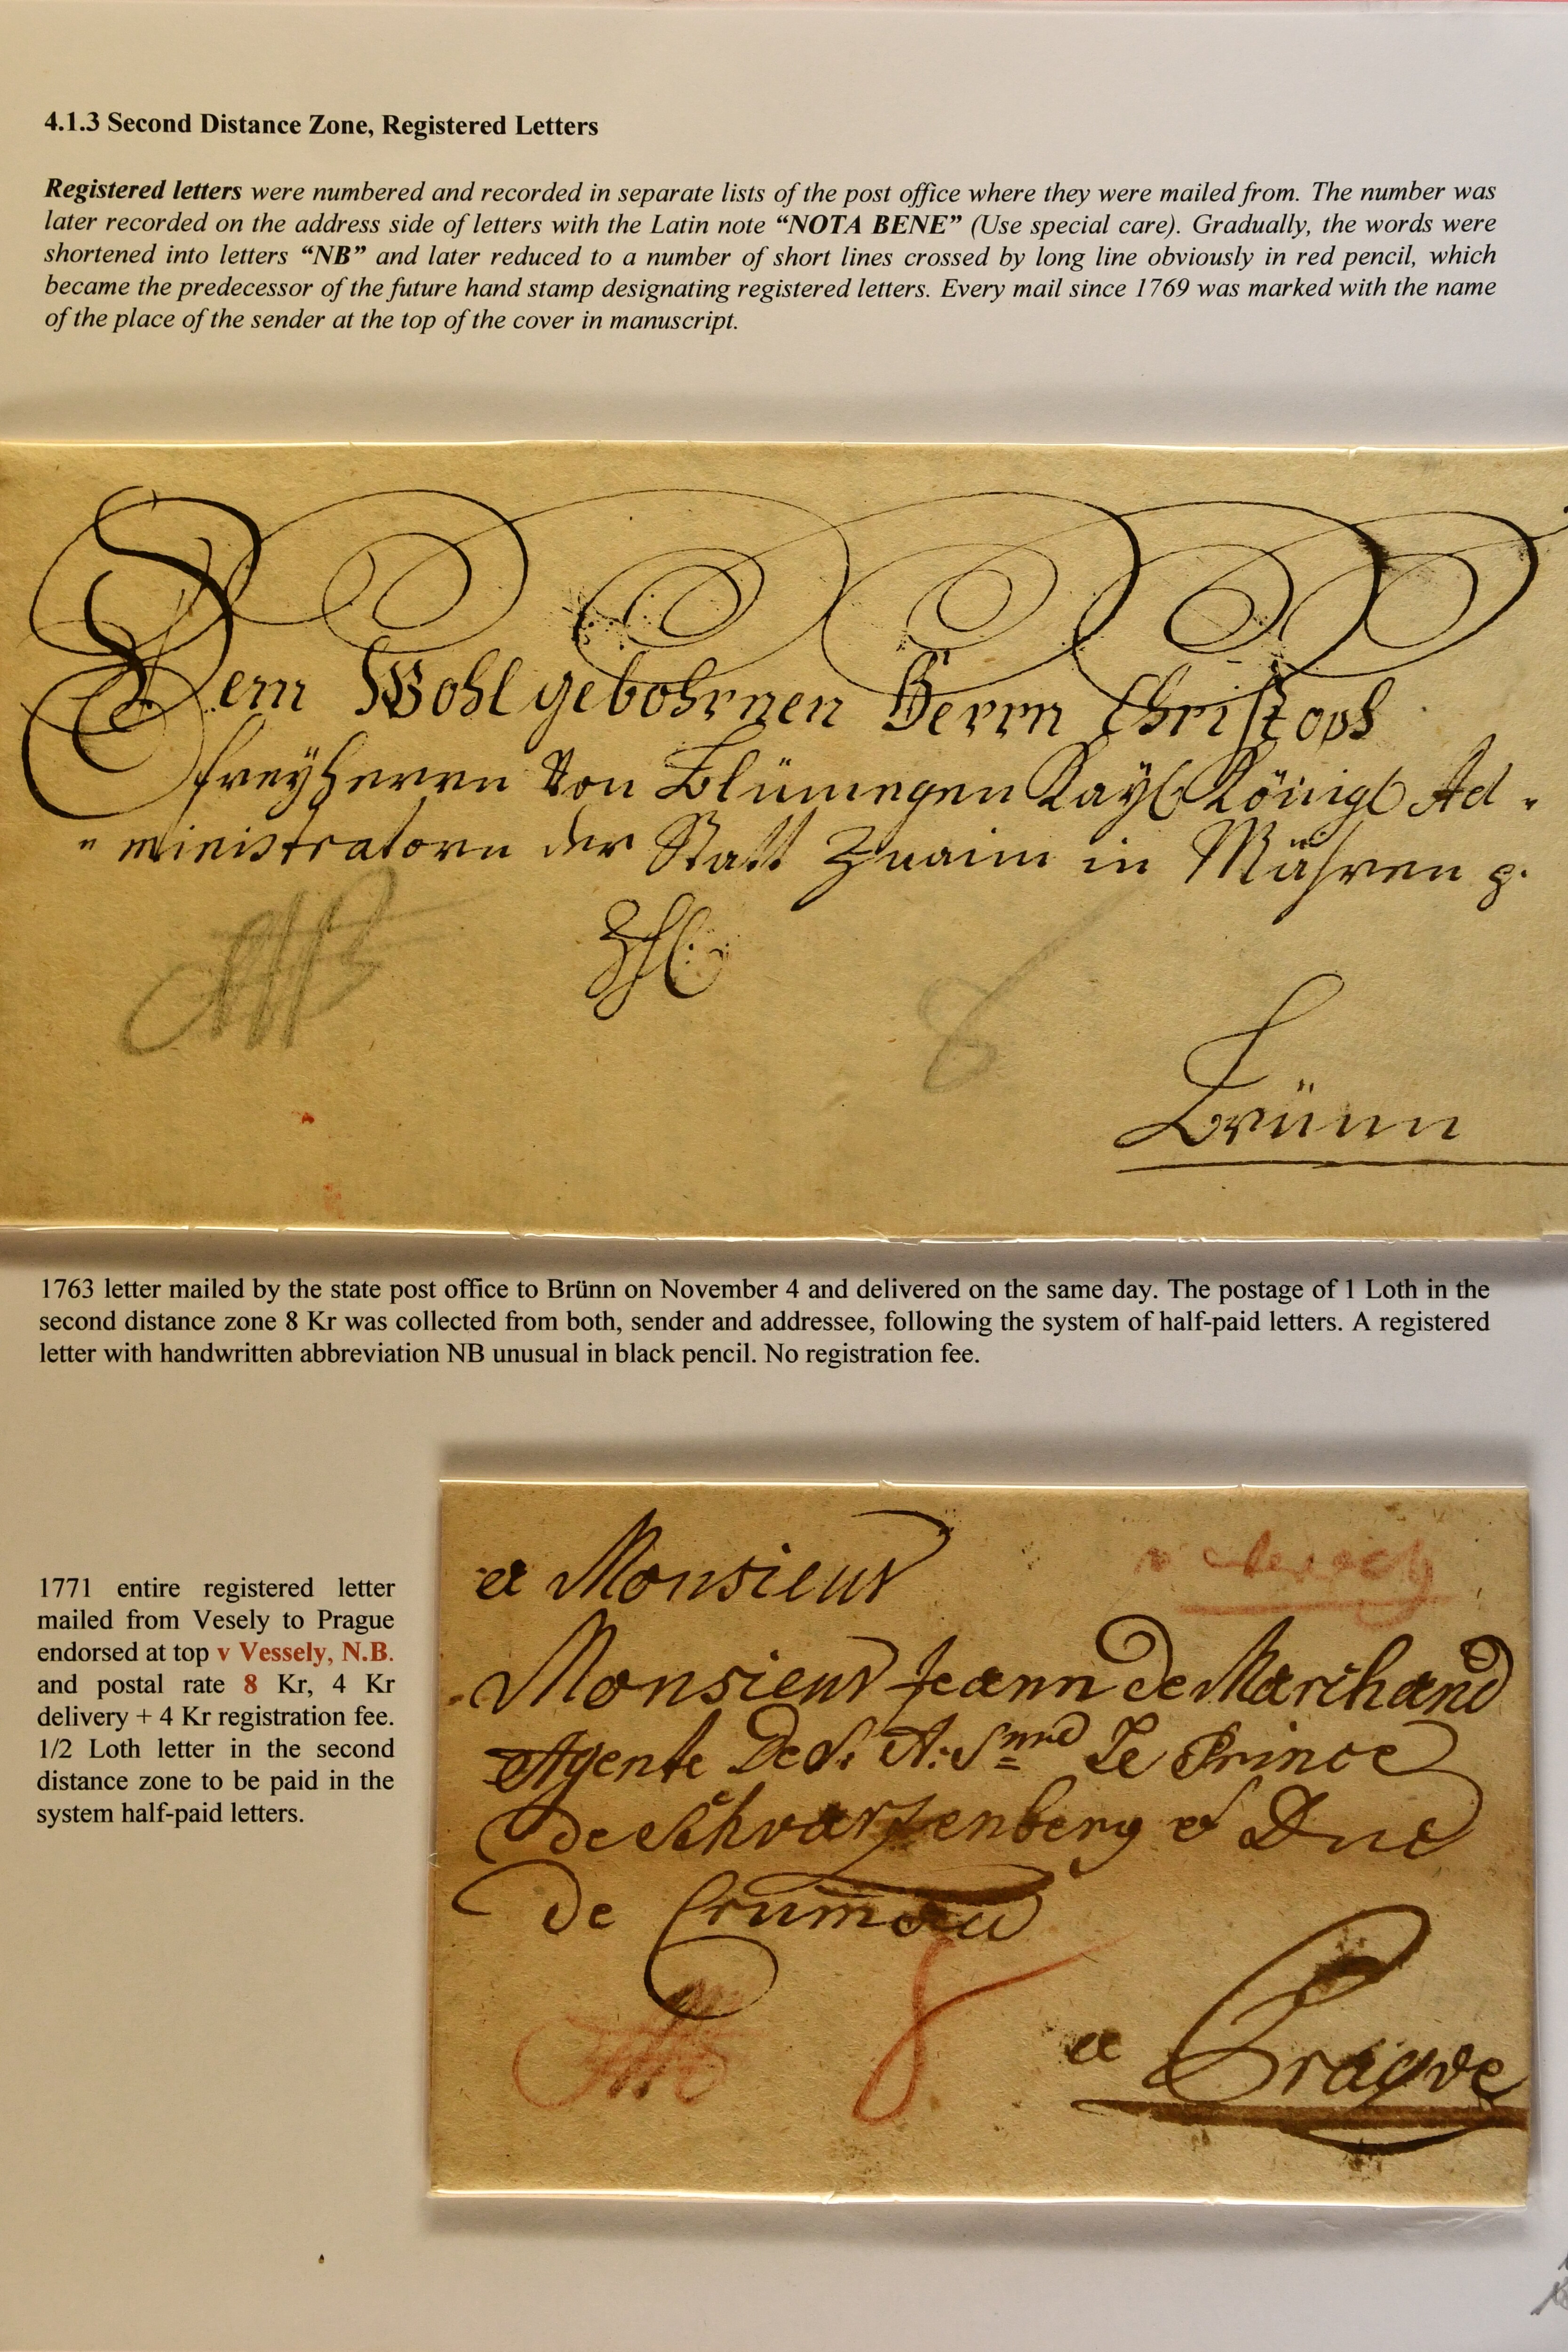 4.1.3 Second Distance Zone, Registered Letters
Registered letters were numbered and recorded in separate lists of the post office where they were mailed from. The number was
later recorded on the address side of letters with the Latin note “NOTA BENE” (Use special care). Gradually, the words were
shortened into letters “NB” and later reduced to a number of short lines crossed by long line obviously in red pencil, which
became the predecessor of the future hand stamp designating registered letters. Every mail since 1769 was marked with the name
of the place of the sender at the top of the cover in manuscript.
Dem Wohlgebohrnen Herrn Christoph
freyherrn Von Blümegen Kayl Königl Ad
ministratorn der Statt Znaim in Mähren
NB
8
Brünn
1763 letter mailed by the state post office to Brünn on November 4 and delivered on the same day. The postage of 1 Loth in the
second distance zone 8 Kr was collected from both, sender and addressee, following the system of half-paid letters. A registered
letter with handwritten abbreviation NB unusual in black pencil. No registration fee.
1771 entire registered letter
mailed from Vesely to Prague
endorsed at top v Vessely, N.B.
and postal rate 8 Kr, 4 Kr
delivery + 4 Kr registration fee.
1/2 Loth letter in the second
distance zone to be paid in the
system half-paid letters.
v Vessely
a Monsieur
Monsieur Jeann de Marchand
Agente De S: A: Le Prince
de Schvarzenberg et Duc
de Crumau
NB
8
a Prague